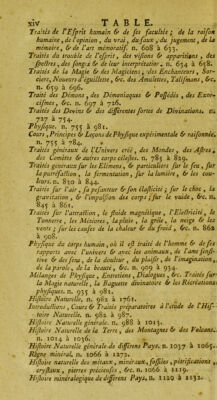 xiv TABLE.
Traités de l'Esprit humain & de ses facultés ; de la raison
humaine, de l'opinion, du vrai, du faux, du jugement, de la
mémoire, & de l'art mémoratif. n. 608 à 633.
Traités du trouble de l'esprit, des visions & apparitions, des
spectres, des songes & de leur interprétation. n. 634 à 658.
Traités de la Magie & des Magiciens, des Enchanteurs, Sor-
ciers, Noueurs d'éguillette, &c. des Amulettes, Talismans, &c.
n. 659 à 696.
Traité des Démons, des Démoniaques & Possédés, des Exor-
cismes, &c. n. 697 à 726.
Traités des Devins & des différentes sortes de Divinations. n.
727 à 754.
Physique. n. 755 à 981.
Cours, Principes & Leçons de Physique expérimentale & raisonnée.
n. 755 à 784.
Traités généraux de l'Univers créé, des Mondes, des Astres,
des Comètes & autres corps célestes. n. 785 à 829.
Traités généraux sur les Elémens, & particuliers sur le feu, sur
la putréfaction, la fermentation, sur la lumière, & les cou-
leurs. n. 830 à 844.
Traités sur l'air, sa pesanteur & son élasticité ; sur le choc, la
gravitation, & l'impulsion des corps ; sur le vuide, &c. n.
845 à 861.
Traités sur l'attraction, le fluide magnétique, l'Electricité, le
Tonnerre, les Météores, la pluie, la grêle, la neige & les
vents ; sur les causes de la chaleur & du froid, &c. n. 862
à 908.
Physique du corps humain, où il est traité de l'homme & de ses
rapports avec l'univers & avec les animaux, de l'ame sensi-
tive & des sens, de la douleur, du plaisir, de l'imagination,
de la parole, de la beauté, &c. n. 909 à 934.
Mélanges de Physique, Entretiens, Dialogues, &c. Traités sur
la Magie naturelle, la Baguette divinatoire & les Récréations
physiques. n. 935 à 981.
Histoire Naturelle. n. 982 à 1761.
Introductions, Cours & Traités préparatoires à l'étude de l'Hist-
toire Naturelle. n. 982 à 987.
Histoire Naturelle générale. n. 988 à 1013.
Histoire Naturelle de la Terre, des Montagnes & des Volcans.
n. 1014 à 1036.
Histoire Naturelle générale de différens Pays. n. 1037 à 1065.
Règne minéral. n. 1066 à 1272.
Histoire naturelle des métaux, minéraux, fossiles, pétrifications,
crystaux, pierres précieuses, &c. n. 1066 à 1119.
Histoire minéralogique de différens Pays. n. 1120 à 1132.